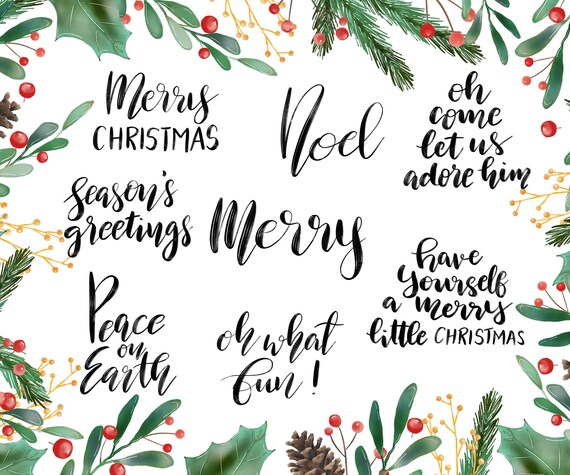 Merry
CHRISTMAS
Noel
oh
come
let us
adore him
Season's
greetings
Merry
have
yourself
a merry
little CHRISTMAS
Peace
on
Earth
oh what
fun!